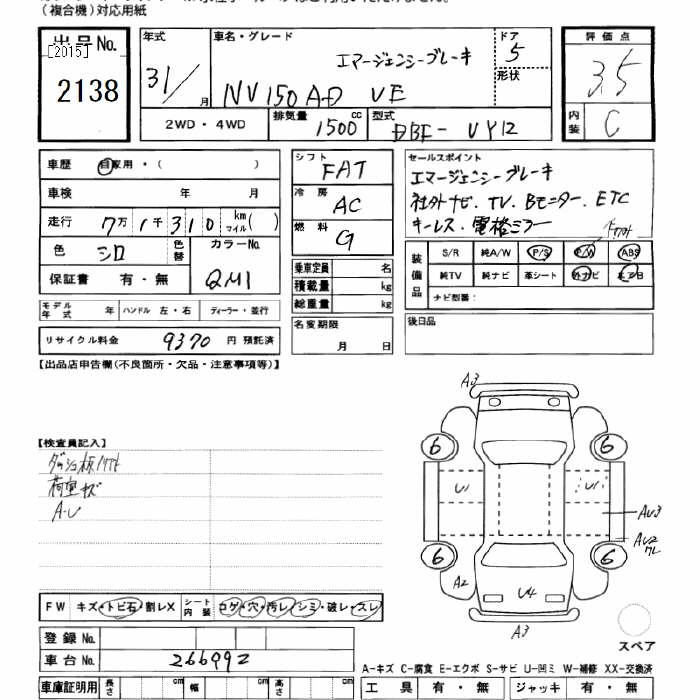 (複合機)対応用紙
出品No.
[2015]
2138
年式
31/
月
車名・グレード
エマージェンシーブレーキ
NV150AD VE
ドア
5
形状
評価点
3.5
内装
C
2WD・4WD
排気量
1500
cc
型式
DBF-VY12
車歴
自家用・( )
車検 年 月
走行 7万1千310 kmマイル( )
色 シロ
色替
カラーNo.
QM1
保証書 有・無
シフト FAT
冷房 AC
燃料 G
セールスポイント
エマージェンシーブレーキ
社外ナビ.TV.Bモニター.ETC
キーレス.電格ミラー
装備品
S/R 純A/W P/S P/W ABS
純TV 純ナビ 革シート 外ナビ エアB
ナビ型番:
乗車定員 名
積載量 kg
総重量 kg
モデル年式
ハンドル 左・右
ディーラー・並行
名変期限
月 日
後日品
リサイクル料金 9370 円 預託済
【出品店申告欄(不良箇所・欠品・注意事項等)】
【検査員記入】
荷室キズ
A-U
A3
6 6
U1 U1
AU3
AU2
6 6
A2
U4
A3
スペア
FW キズ・トビ石・割レX
シート内装 コゲ・穴・汚レ・シミ・破レ・スレ
登録No.
車台No. 266992
A-キズ C-腐食 E-エクボ S-サビ U-凹ミ W-補修 XX-交換済
車庫証明用 長さ cm 幅 cm 高さ cm
工具 有・無 ジャッキ 有・無